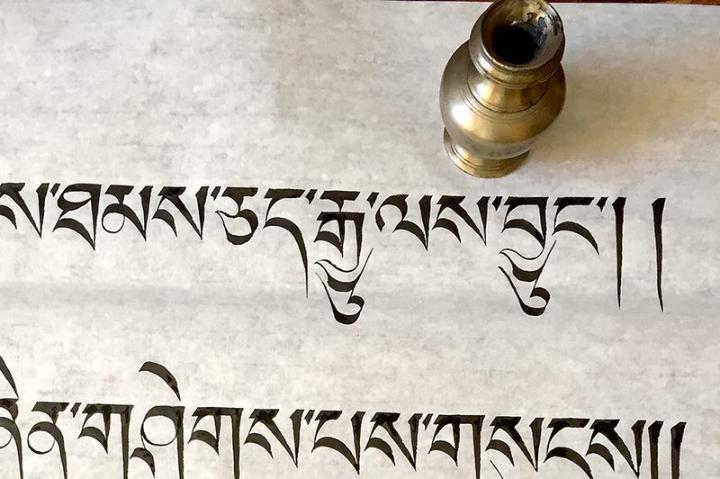 ས་ཐམས་ཅད་རྒྱུ་ལས་བྱུང་།།
ཞིན་གཤེགས་པས་གསུངས།།